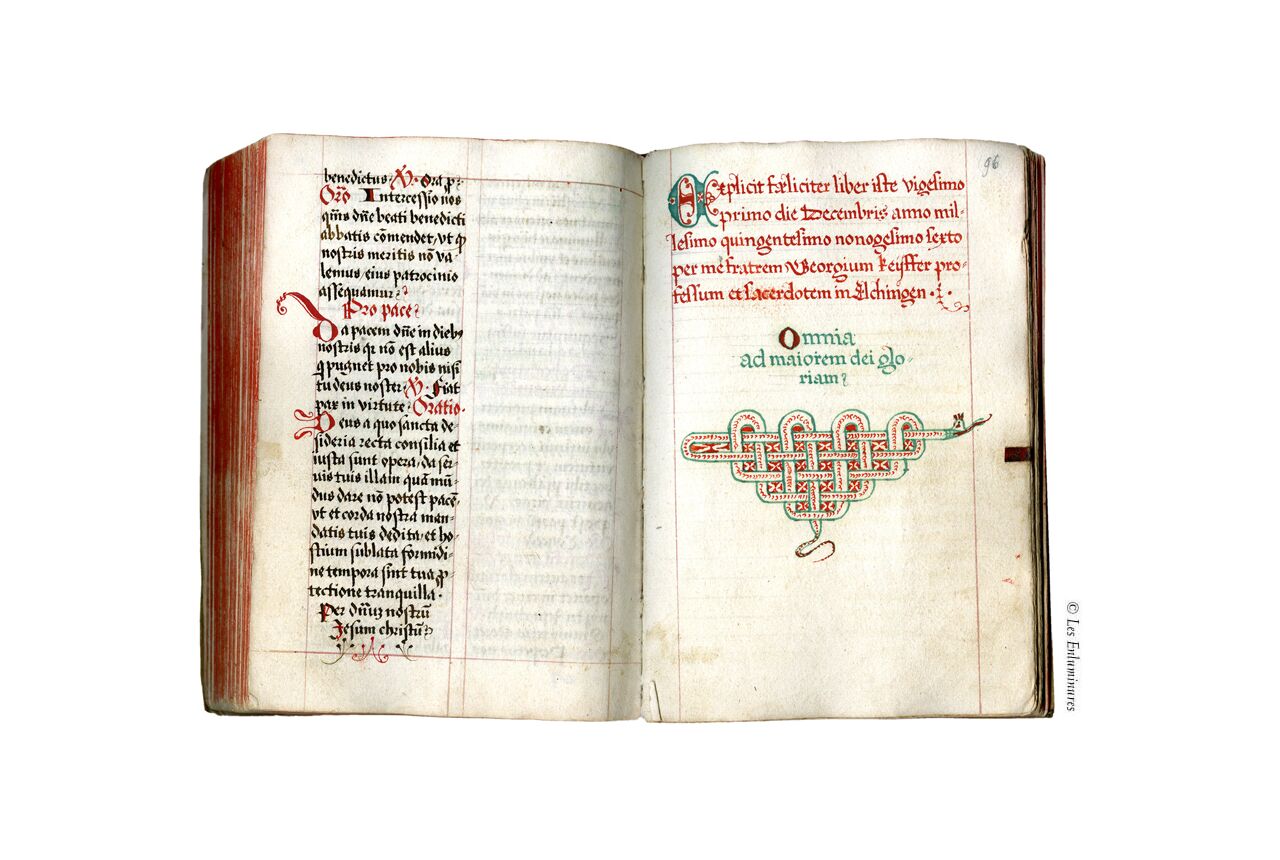 benedictus ℣. Ora p̄:
Orõ Intercessio nos
q̄ms dñe beati benedicti
abbatis cõmendet, vt q̄
nostris meritis nõ va-
lemus, eius patrocinio
assequamur.
Pro pace
Da pacem dñe in dieb9
nostris qr nõ est alius
q̄ pugnet pro nobis nisi
tu deus noster. ℣. Fiat
pax in virtute. Oratio.
Deus a quo sancta de-
sideria recta consilia et
iusta sunt opera, da ser-
uis tuis illam quã mũ-
dus dare nõ potest pacẽ,
vt et corda nostra man-
datis tuis dedita, et ho-
stium sublata formidi-
ne tempora sint tua ꝓ-
tectione tranquilla.
Per dñuʒ nostrũ
Jesum christũ
96
Explicit fæliciter liber iste vigesimo
primo die Decembris anno mil-
lesimo quingentesimo nonogesimo sexto
per me fratrem Georgium Keyffer pro-
fessum et sacerdotem in Elchingen.
Omnia
ad maiorem dei glo-
riam
© Les Enluminures